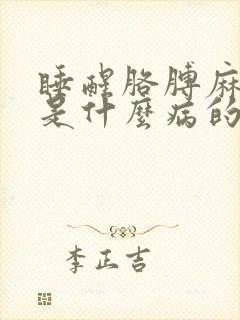 睡醒胳膊麻
是什麼病的
李正吉